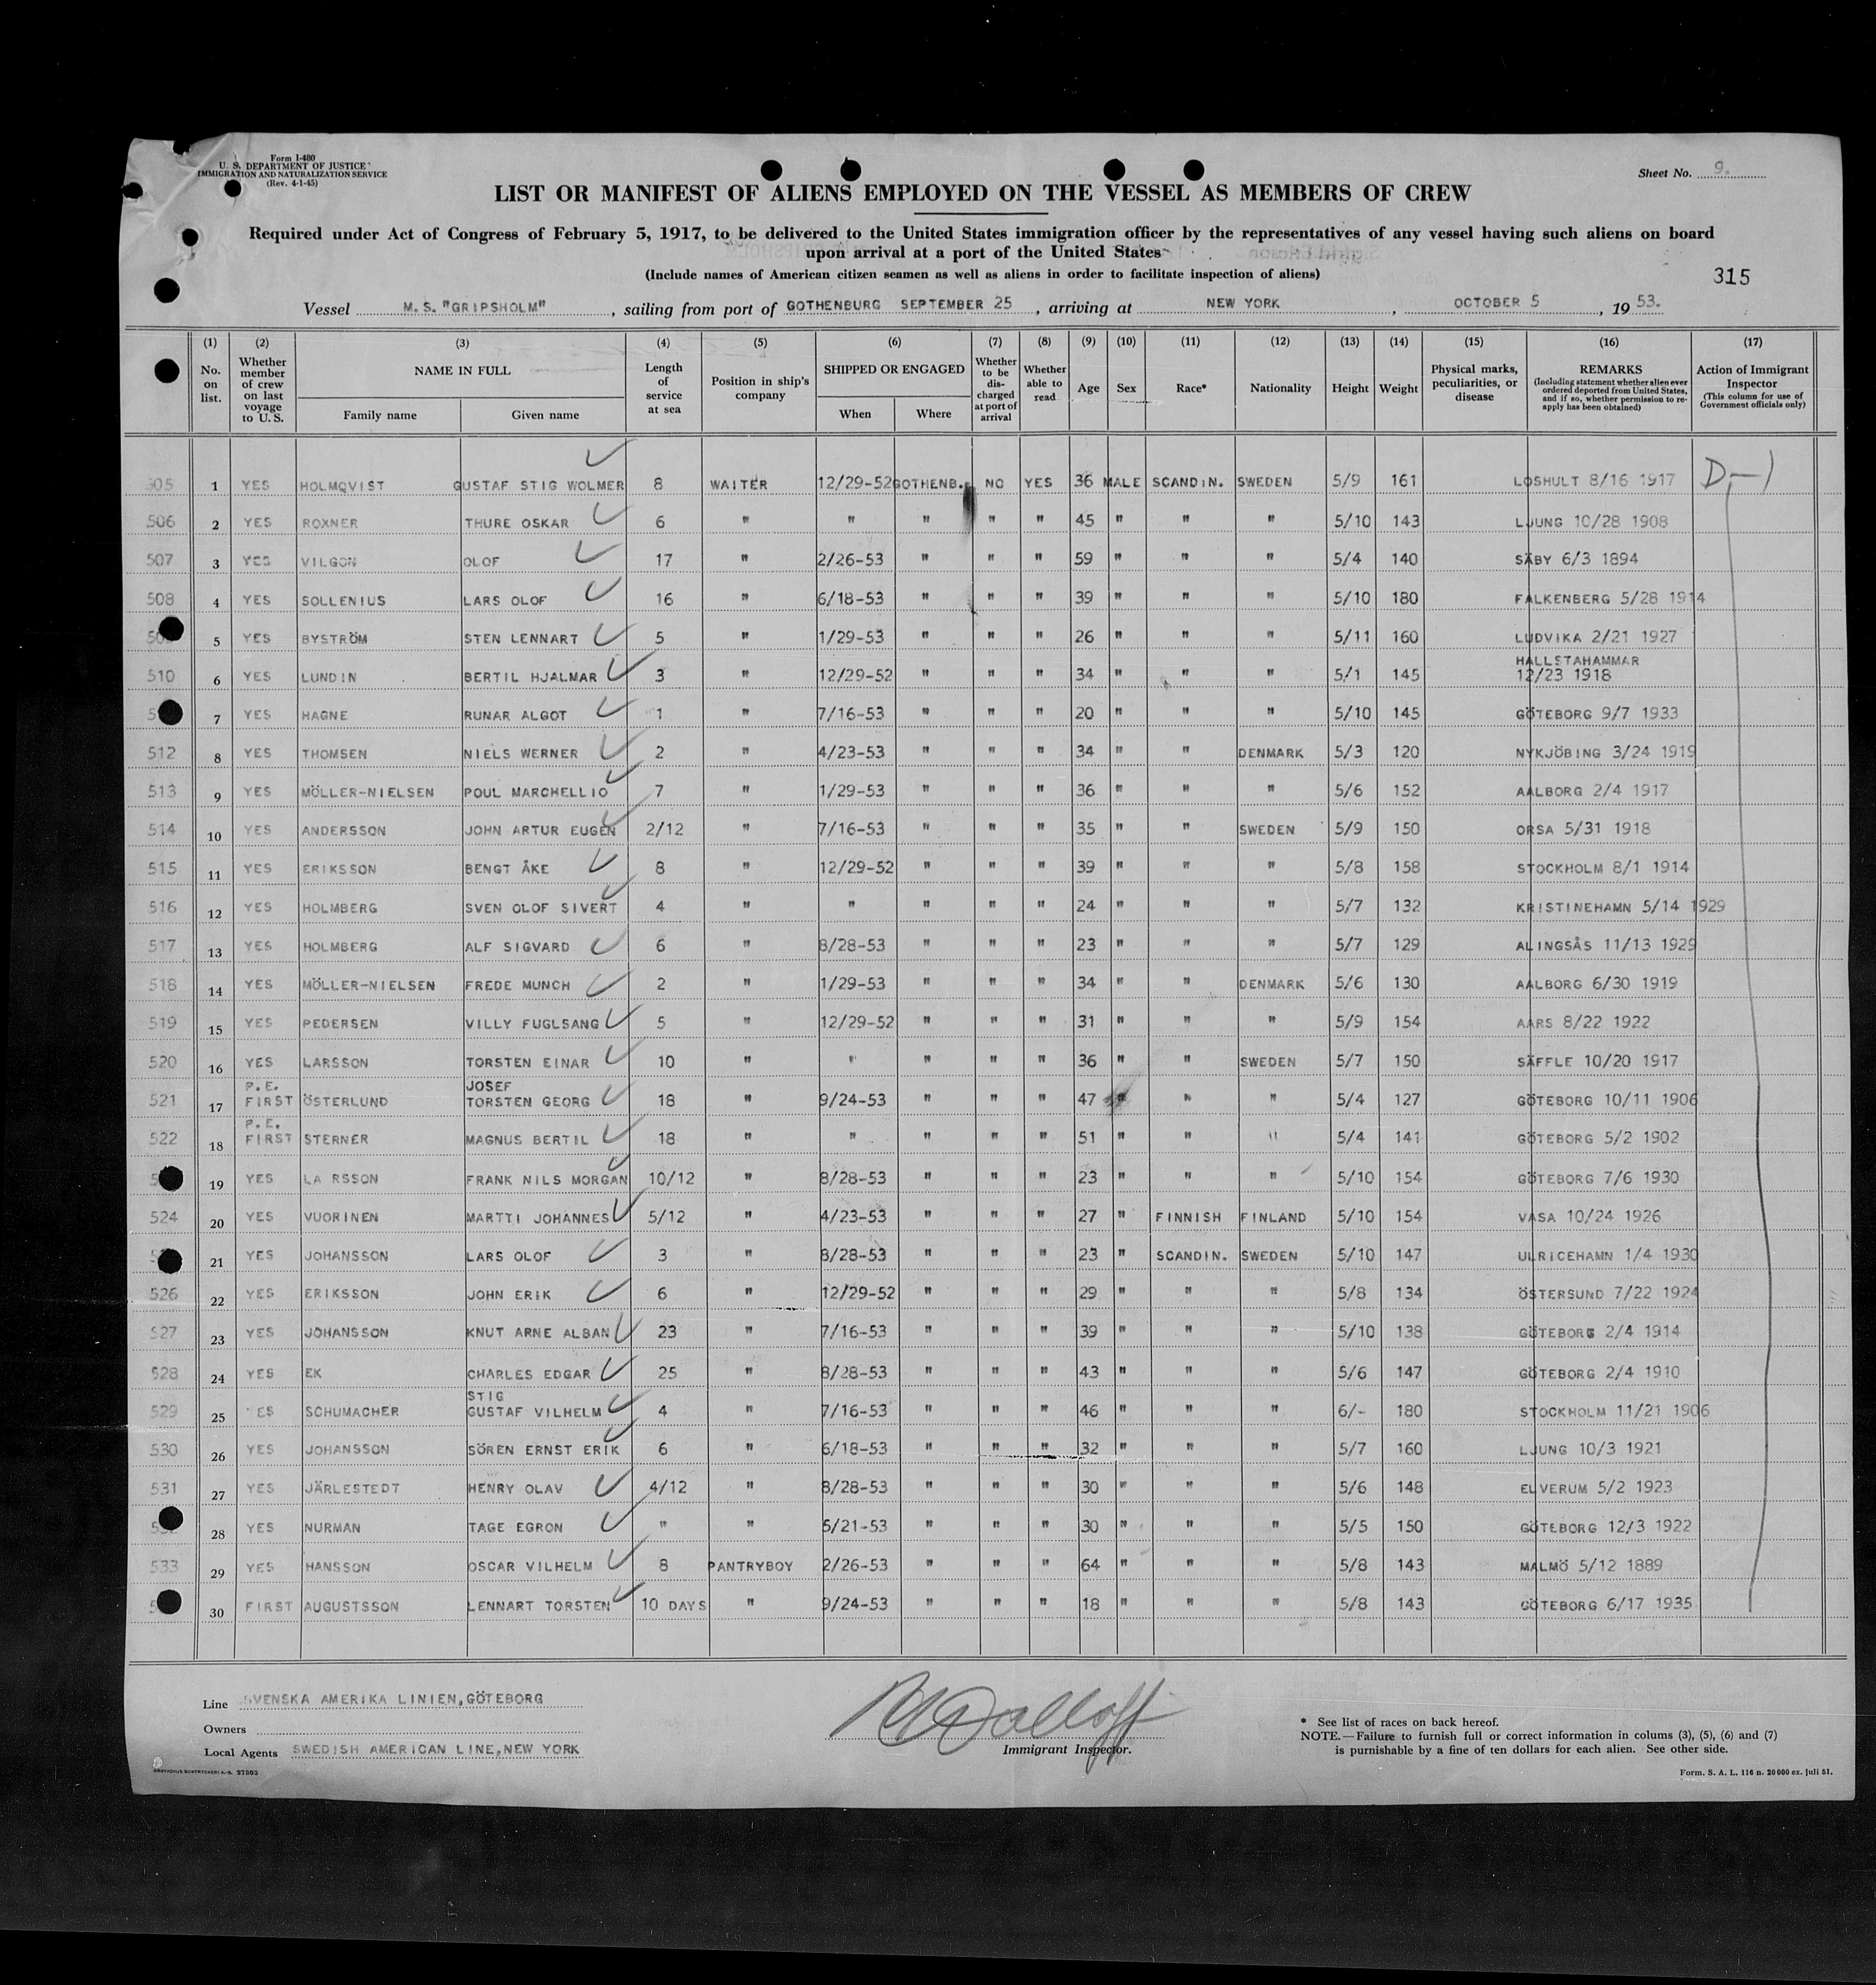 Form I-480
U. S. DEPARTMENT OF JUSTICE
IMMIGRATION AND NATURALIZATION SERVICE
(Rev. 4-1-45)
Sheet No. 9.
LIST OR MANIFEST OF ALIENS EMPLOYED ON THE VESSEL AS MEMBERS OF CREW
Required under Act of Congress of February 5, 1917, to be delivered to the United States immigration officer by the representatives of any vessel having such aliens on board
upon arrival at a port of the United States
(Include names of American citizen seamen as well as aliens in order to facilitate inspection of aliens)
315
Vessel M.S. "GRIPSHOLM", sailing from port of GOTHENBURG SEPTEMBER 25, arriving at NEW YORK, OCTOBER 5, 1953.
(1) No. on list. (2) Whether member of crew on last voyage to U. S. (3) NAME IN FULL Family name Given name (4) Length of service at sea (5) Position in ship's company (6) SHIPPED OR ENGAGED When Where (7) Whether to be discharged at port of arrival (8) Whether able to read (9) Age (10) Sex (11) Race* (12) Nationality (13) Height (14) Weight (15) Physical marks, peculiarities, or disease (16) REMARKS (Including statement whether alien ever ordered deported from United States, and if so, whether permission to re-apply has been obtained) (17) Action of Immigrant Inspector (This column for use of Government officials only)
505 1 YES HOLMQVIST GUSTAF STIG WOLMER 8 WAITER 12/29-52 GOTHENB. NO YES 36 MALE SCANDIN. SWEDEN 5/9 161 LOSHULT 8/16 1917 D-1
506 2 YES ROXNER THURE OSKAR 6 " " " " " 45 " " " 5/10 143 LJUNG 10/28 1908
507 3 YES VILGON OLOF 17 " 2/26-53 " " " 59 " " " 5/4 140 SÄBY 6/3 1894
508 4 YES SOLLENIUS LARS OLOF 16 " 6/18-53 " " " 39 " " " 5/10 180 FALKENBERG 5/28 1914
5 YES BYSTRÖM STEN LENNART 5 " 1/29-53 " " " 26 " " " 5/11 160 LUDVIKA 2/21 1927
510 6 YES LUNDIN BERTIL HJALMAR 3 " 12/29-52 " " " 34 " " " 5/1 145 HALLSTAHAMMAR 12/23 1918
7 YES HAGNE RUNAR ALGOT 1 " 7/16-53 " " " 20 " " " 5/10 145 GÖTEBORG 9/7 1933
512 8 YES THOMSEN NIELS WERNER 2 " 4/23-53 " " " 34 " " DENMARK 5/3 120 NYKJÖBING 3/24 1919
513 9 YES MÖLLER-NIELSEN POUL MARCHELLIO 7 " 1/29-53 " " " 36 " " " 5/6 152 AALBORG 2/4 1917
514 10 YES ANDERSSON JOHN ARTUR EUGEN 2/12 " 7/16-53 " " " 35 " " SWEDEN 5/9 150 ORSA 5/31 1918
515 11 YES ERIKSSON BENGT ÅKE 8 " 12/29-52 " " " 39 " " " 5/8 158 STOCKHOLM 8/1 1914
516 12 YES HOLMBERG SVEN OLOF SIVERT 4 " " " " " 24 " " " 5/7 132 KRISTINEHAMN 5/14 1929
517 13 YES HOLMBERG ALF SIGVARD 6 " 8/28-53 " " " 23 " " " 5/7 129 ALINGSÅS 11/13 1929
518 14 YES MÖLLER-NIELSEN FREDE MUNCH 2 " 1/29-53 " " " 34 " " DENMARK 5/6 130 AALBORG 6/30 1919
519 15 YES PEDERSEN VILLY FUGLSANG 5 " 12/29-52 " " " 31 " " " 5/9 154 AARS 8/22 1922
520 16 YES LARSSON TORSTEN EINAR 10 " " " " " 36 " " SWEDEN 5/7 150 SÄFFLE 10/20 1917
521 17 P.E. FIRST ÖSTERLUND JOSEF TORSTEN GEORG 18 " 9/24-53 " " " 47 " " " 5/4 127 GÖTEBORG 10/11 1906
522 18 P.E. FIRST STERNER MAGNUS BERTIL 18 " " " " " 51 " " " 5/4 141 GÖTEBORG 5/2 1902
19 YES LA RSSON FRANK NILS MORGAN 10/12 " 8/28-53 " " " 23 " " " 5/10 154 GÖTEBORG 7/6 1930
524 20 YES VUORINEN MARTTI JOHANNES 5/12 " 4/23-53 " " " 27 " FINNISH FINLAND 5/10 154 VASA 10/24 1926
21 YES JOHANSSON LARS OLOF 3 " 8/28-53 " " " 23 " SCANDIN. SWEDEN 5/10 147 ULRICEHAMN 1/4 1930
526 22 YES ERIKSSON JOHN ERIK 6 " 12/29-52 " " " 29 " " " 5/8 134 ÖSTERSUND 7/22 1924
527 23 YES JOHANSSON KNUT ARNE ALBAN 23 " 7/16-53 " " " 39 " " " 5/10 138 GÖTEBORG 2/4 1914
528 24 YES EK CHARLES EDGAR 25 " 8/28-53 " " " 43 " " " 5/6 147 GÖTEBORG 2/4 1910
529 25 ES SCHUMACHER STIG GUSTAF VILHELM 4 " 7/16-53 " " " 46 " " " 6/- 180 STOCKHOLM 11/21 1906
530 26 YES JOHANSSON SÖREN ERNST ERIK 6 " 6/18-53 " " " 32 " " " 5/7 160 LJUNG 10/3 1921
531 27 YES JÄRLESTEDT HENRY OLAV 4/12 " 8/28-53 " " " 30 " " " 5/6 148 ELVERUM 5/2 1923
28 YES NURMAN TAGE EGRON " " 5/21-53 " " " 30 " " " 5/5 150 GÖTEBORG 12/3 1922
533 29 YES HANSSON OSCAR VILHELM 8 PANTRYBOY 2/26-53 " " " 64 " " " 5/8 143 MALMÖ 5/12 1889
30 FIRST AUGUSTSSON LENNART TORSTEN 10 DAYS " 9/24-53 " " " 18 " " " 5/8 143 GÖTEBORG 6/17 1935
Line SVENSKA AMERIKA LINIEN, GÖTEBORG
Owners
Local Agents SWEDISH AMERICAN LINE, NEW YORK
Immigrant Inspector.
* See list of races on back hereof.
NOTE.—Failure to furnish full or correct information in colums (3), (5), (6) and (7)
is punishable by a fine of ten dollars for each alien. See other side.
Form. S. A. L. 116 n. 20000 ex. juli 51.